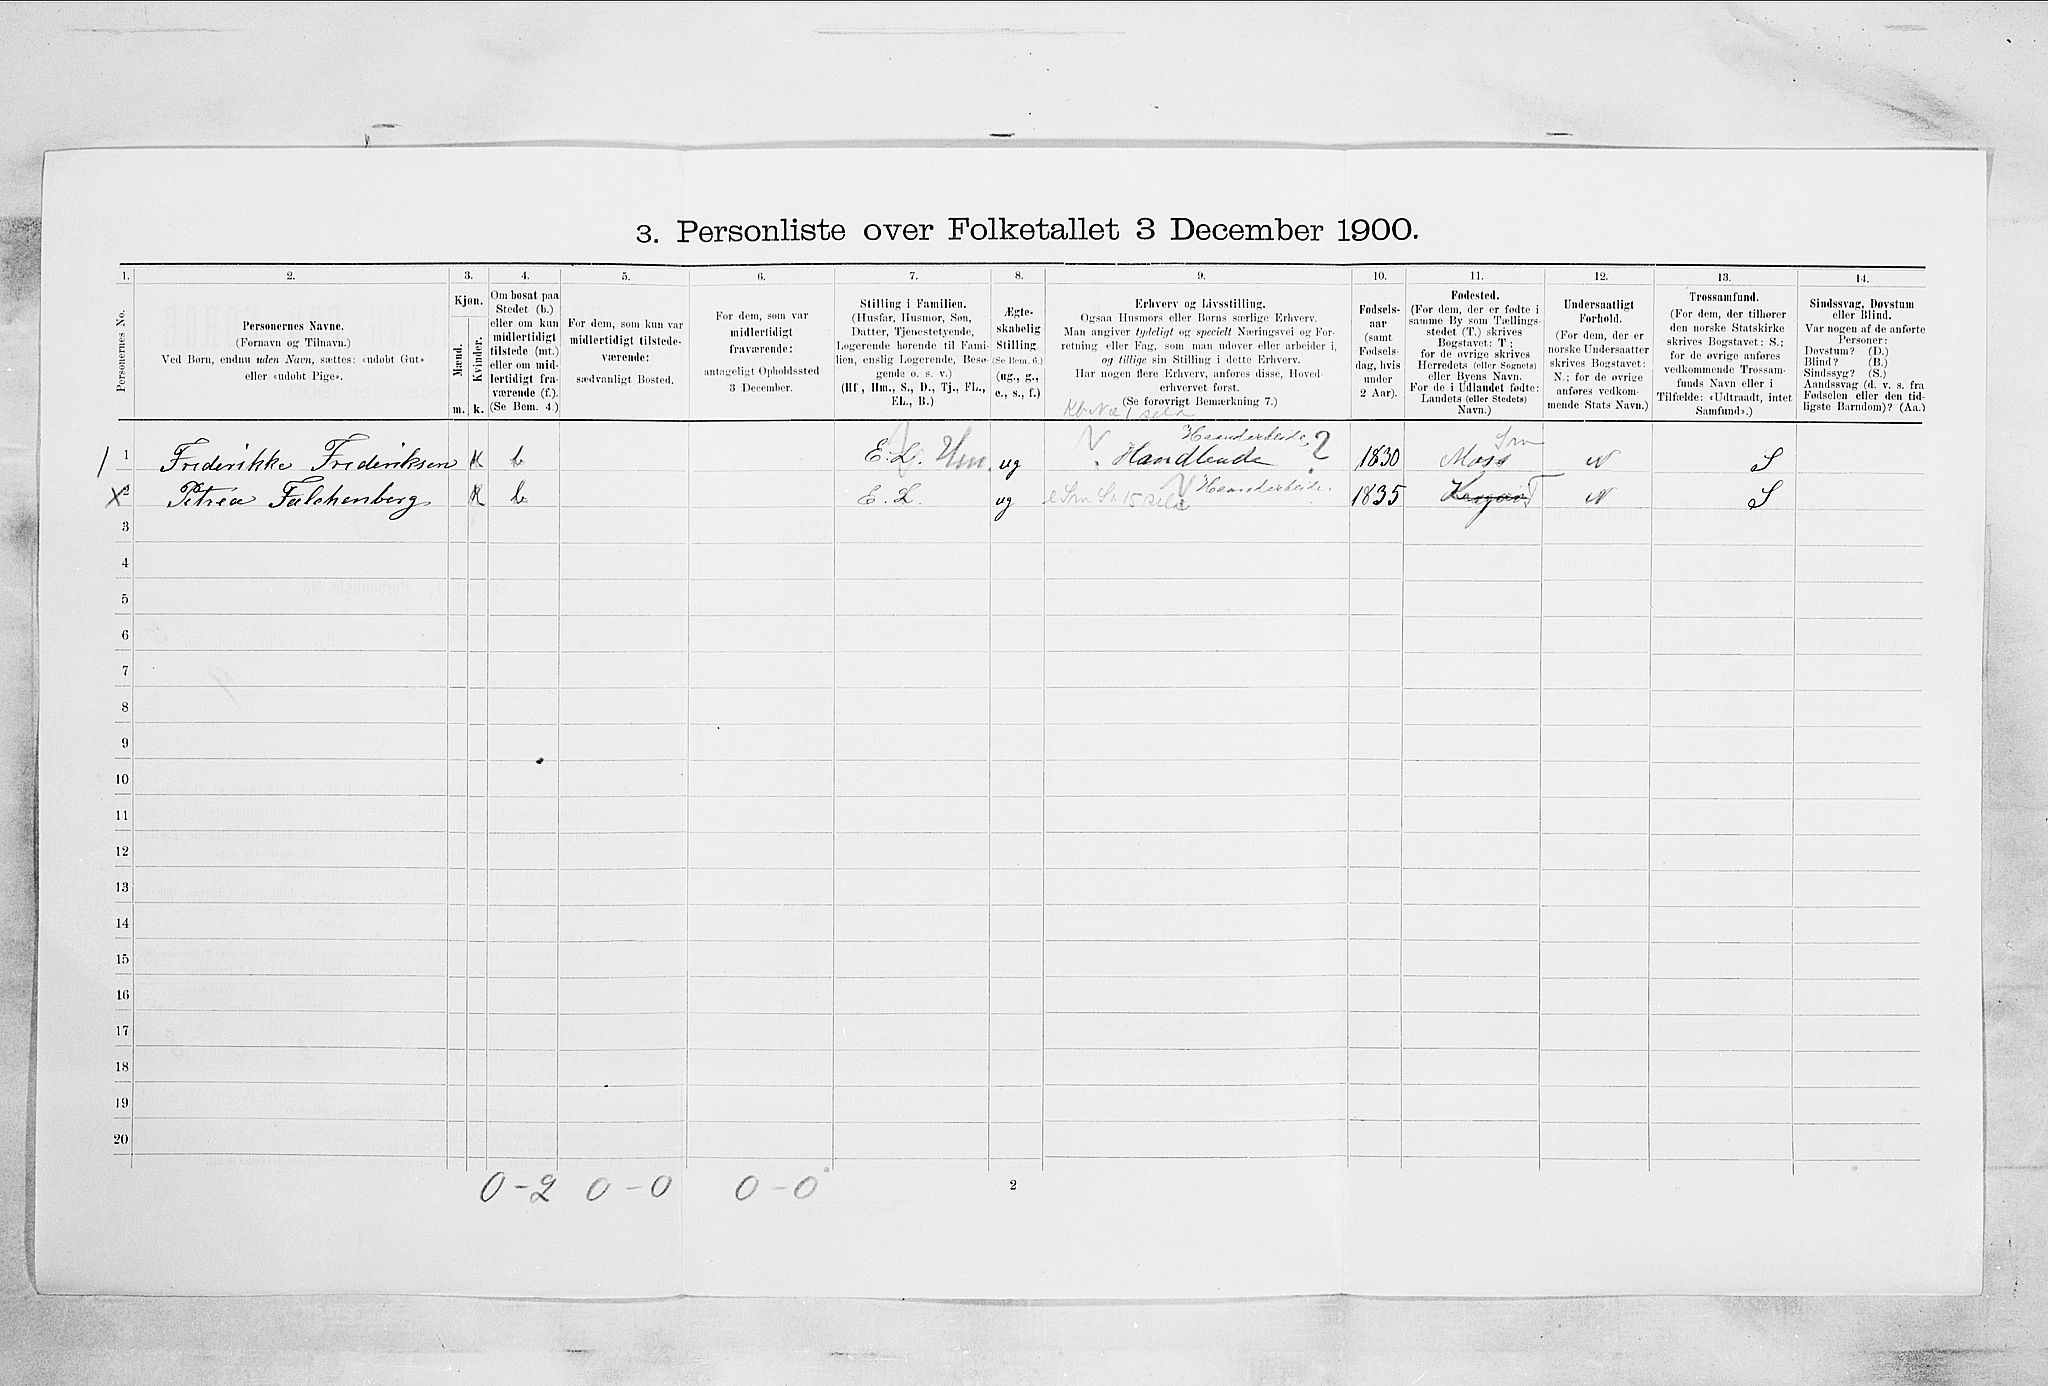 3. Personliste over Folketallet 3 December 1900.
1. 2. 3. 4. 5. 6. 7. 8. 9. 10. 11. 12. 13. 14.
Personernes No.
Personernes Navne.
(Fornavn og Tilnavn.)
Ved Børn, endnu uden Navn, sættes: «udøbt Gut»
eller «udøbt Pige».
Kjøn.
Mænd.
Kvinder.
m. k.
Om bosat paa
Stedet (b.)
eller om kun
midlertidigt
tilstede (mt.)
eller om mid-
lertidigt fra-
værende (f.).
(Se Bem. 4.)
For dem, som kun var
midlertidigt tilstede-
værende:
sædvanligt Bosted.
For dem, som var
midlertidigt
fraværende:
antageligt Opholdssted
3 December.
Stilling i Familien.
(Husfar, Husmor, Søn,
Datter, Tjenestetyende,
Logerende hørende til Fami-
lien, enslig Logerende, Besø-
gende o. s. v.)
(Hf., Hm., S., D., Tj., FL.,
EL., B.)
Ægte-
skabelig
Stilling.
(Se Bem. 6.)
(ug., g.,
e., s., f.)
Erhverv og Livsstilling.
Ogsaa Husmors eller Børns særlige Erhverv.
Man angiver tydeligt og specielt Næringsvei og For-
retning eller Fag, som man udøver eller arbeider i,
og tillige sin Stilling i dette Erhverv.
Har nogen flere Erhverv, anføres disse, Hoved-
erhvervet først.
(Se forøvrigt Bemærkning 7.)
Fødsels-
aar
(samt
Fødsels-
dag, hvis
under
2 Aar).
Fødested.
(For dem, der er fødte i
samme By som Tællings-
stedet (T.) skrives
Bogstavet: T;
for de øvrige skrives
Herredets (eller Sognets)
eller Byens Navn.
For de i Udlandet fødte:
Landets (eller Stedets)
Navn.)
Undersaatligt
Forhold.
(For dem, der er
norske Undersaatter
skrives Bogstavet:
N.; for de øvrige
anføres vedkom-
mende Stats Navn.)
Trossamfund.
(For dem, der tilhører
den norske Statskirke
skrives Bogstavet: S.;
for de øvrige anføres
vedkommende Trossam-
funds Navn eller i
Tilfælde: «Udtraadt, intet
Samfund».)
Sindssvag, Døvstum
eller Blind.
Var nogen af de anførte
Personer:
Døvstum? (D.)
Blind? (B.)
Sindssyg? (S.)
Aandssvag (d. v. s. fra
Fødselen eller den tid-
ligste Barndom)? (Aa.)
Haandarbeide Sm
1 Frederikke Frederiksen K b E. L. Hm. ug Handlende ? 1830 Moss N S
X 2 Petrea Falchenberg K b E. L. ug Haandarbeide. 1835 T N S
3
4
5
6
7
8
9
10
11
12
13
14
15
16
17
18
19
20
0-2 0-0 0-0 2